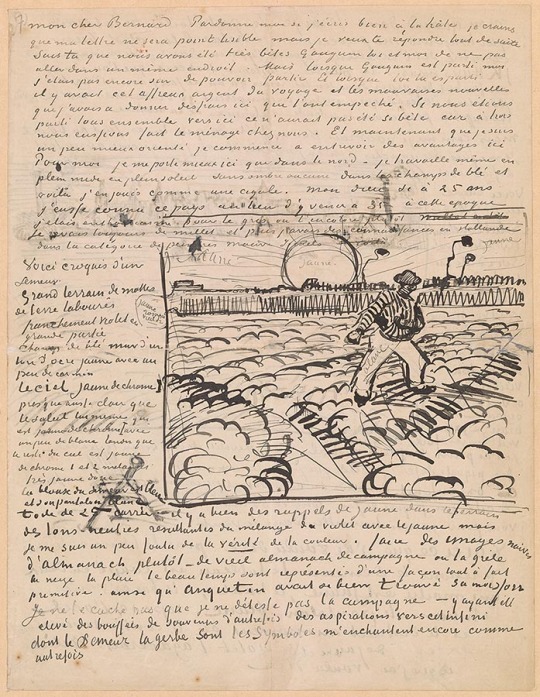 mon cher Bernard Pardonne moi si j'écris bien à la hâte je crains
que ma lettre ne sera point lisible mais je veux te répondre tout de suite
Sais tu que nous avons été très bêtes Gauguin toi et moi de ne pas
aller dans un même endroit. Mais lorsque Gauguin est parti moi
j'étais pas encore sûr de pouvoir partir Et lorsque toi tu es parti
il y avait cet affreux argent du voyage et les mauvaises nouvelles
que j'avais à donner des frais ici qui l'ont empêché. Si nous étions
parti tous ensemble vers ici ce n'aurait pas été si bête car à trois
nous eussions fait le ménage chez nous. Et maintenant que je suis
un peu mieux orienté je commence à entrevoir des avantages ici
Pour moi je me porte mieux ici que dans le nord - je travaille même en
plein midi en plein soleil sans ombre aucune dans les champs de blé et
voilà j'en jouis comme une cigale. mon dieu si à 25 ans
j'eusse connu ce pays au lieu d'y venir à 35 à cette époque
j'étais pour le gris ou l'incolore plutôt
je rêvais toujours de millet et puis j'avais des connaissances en Hollande
dans la catégorie de peintres mauve Israels
jaune
jaune
Voici croquis d'un
semeur.
Grand terrain de mottes
de terre labourés
franchement violet en
grande partie
Champ de blé mur d'un
ton d'ocre jaune avec un
peu de carmin
Le ciel jaune de chrome 1
presque aussi clair que
le soleil lui même qui
est jaune de chrome 1 avec
un peu de blanc tandis que
le reste du ciel est jaune
de chrome 1 et 2 mélangés
très jaune donc
La blouse du semeur est bleue
et son pantalon blanc
toile de 25 carrée - il y a bien des rappels de jaune dans le terrain
des tons neutres resultantes du mélange du violet avec le jaune mais
je me suis un peu foutu de la vérité de la couleur. faire des images naives
d'almanach plutôt - de vieil almanach de campagne où la grêle
la neige la pluie le beau temps sont représentés d'une façon tout à fait
primitive. ainsi qu'Anquetin avait si bien trouvé sa moisson
Je ne te cache pas que je ne déteste pas la campagne - y ayant été
élevé des bouffées de souvenirs d'autrefois des aspirations vers cet infini
dont le Semeur la gerbe sont les symboles m'enchantent encore comme
autrefois
blanc